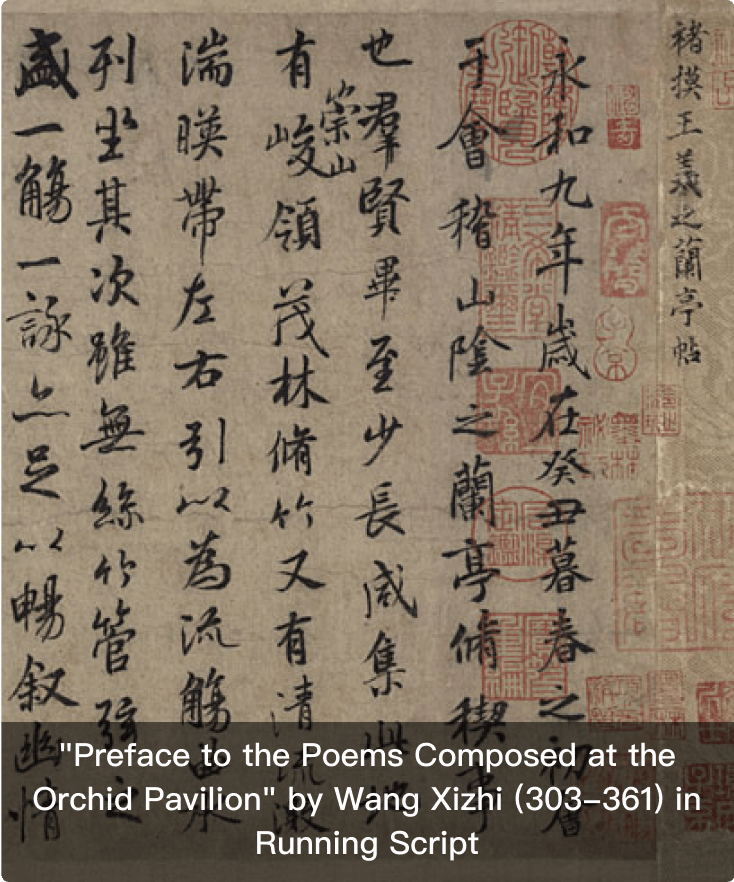 褚摸王羲之蘭亭帖
永和九年歳在癸丑暮春之初會
于會稽山陰之蘭亭脩稧事
也羣賢畢至少長咸集此地
有崇山峻領茂林脩竹又有清流激
湍暎帶左右引以為流觴曲水
列坐其次雖無絲竹管弦之
盛一觴一詠亦足以暢叙幽情
"Preface to the Poems Composed at the
Orchid Pavilion" by Wang Xizhi (303–361) in
Running Script